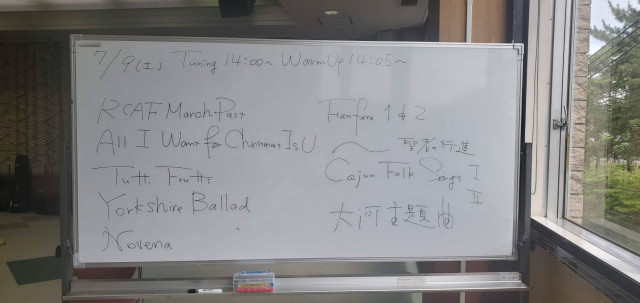 7/9(土) Tuning 14:00~ WarmUp 14:05~
RCAF March Past
All I Want for Christmas Is U
Tutti Frutti
Yorkshire Ballad
Novena
Fanfare 1 & 2
~ 聖者の行進
Cajun Folk Songs I
II
大河主題曲